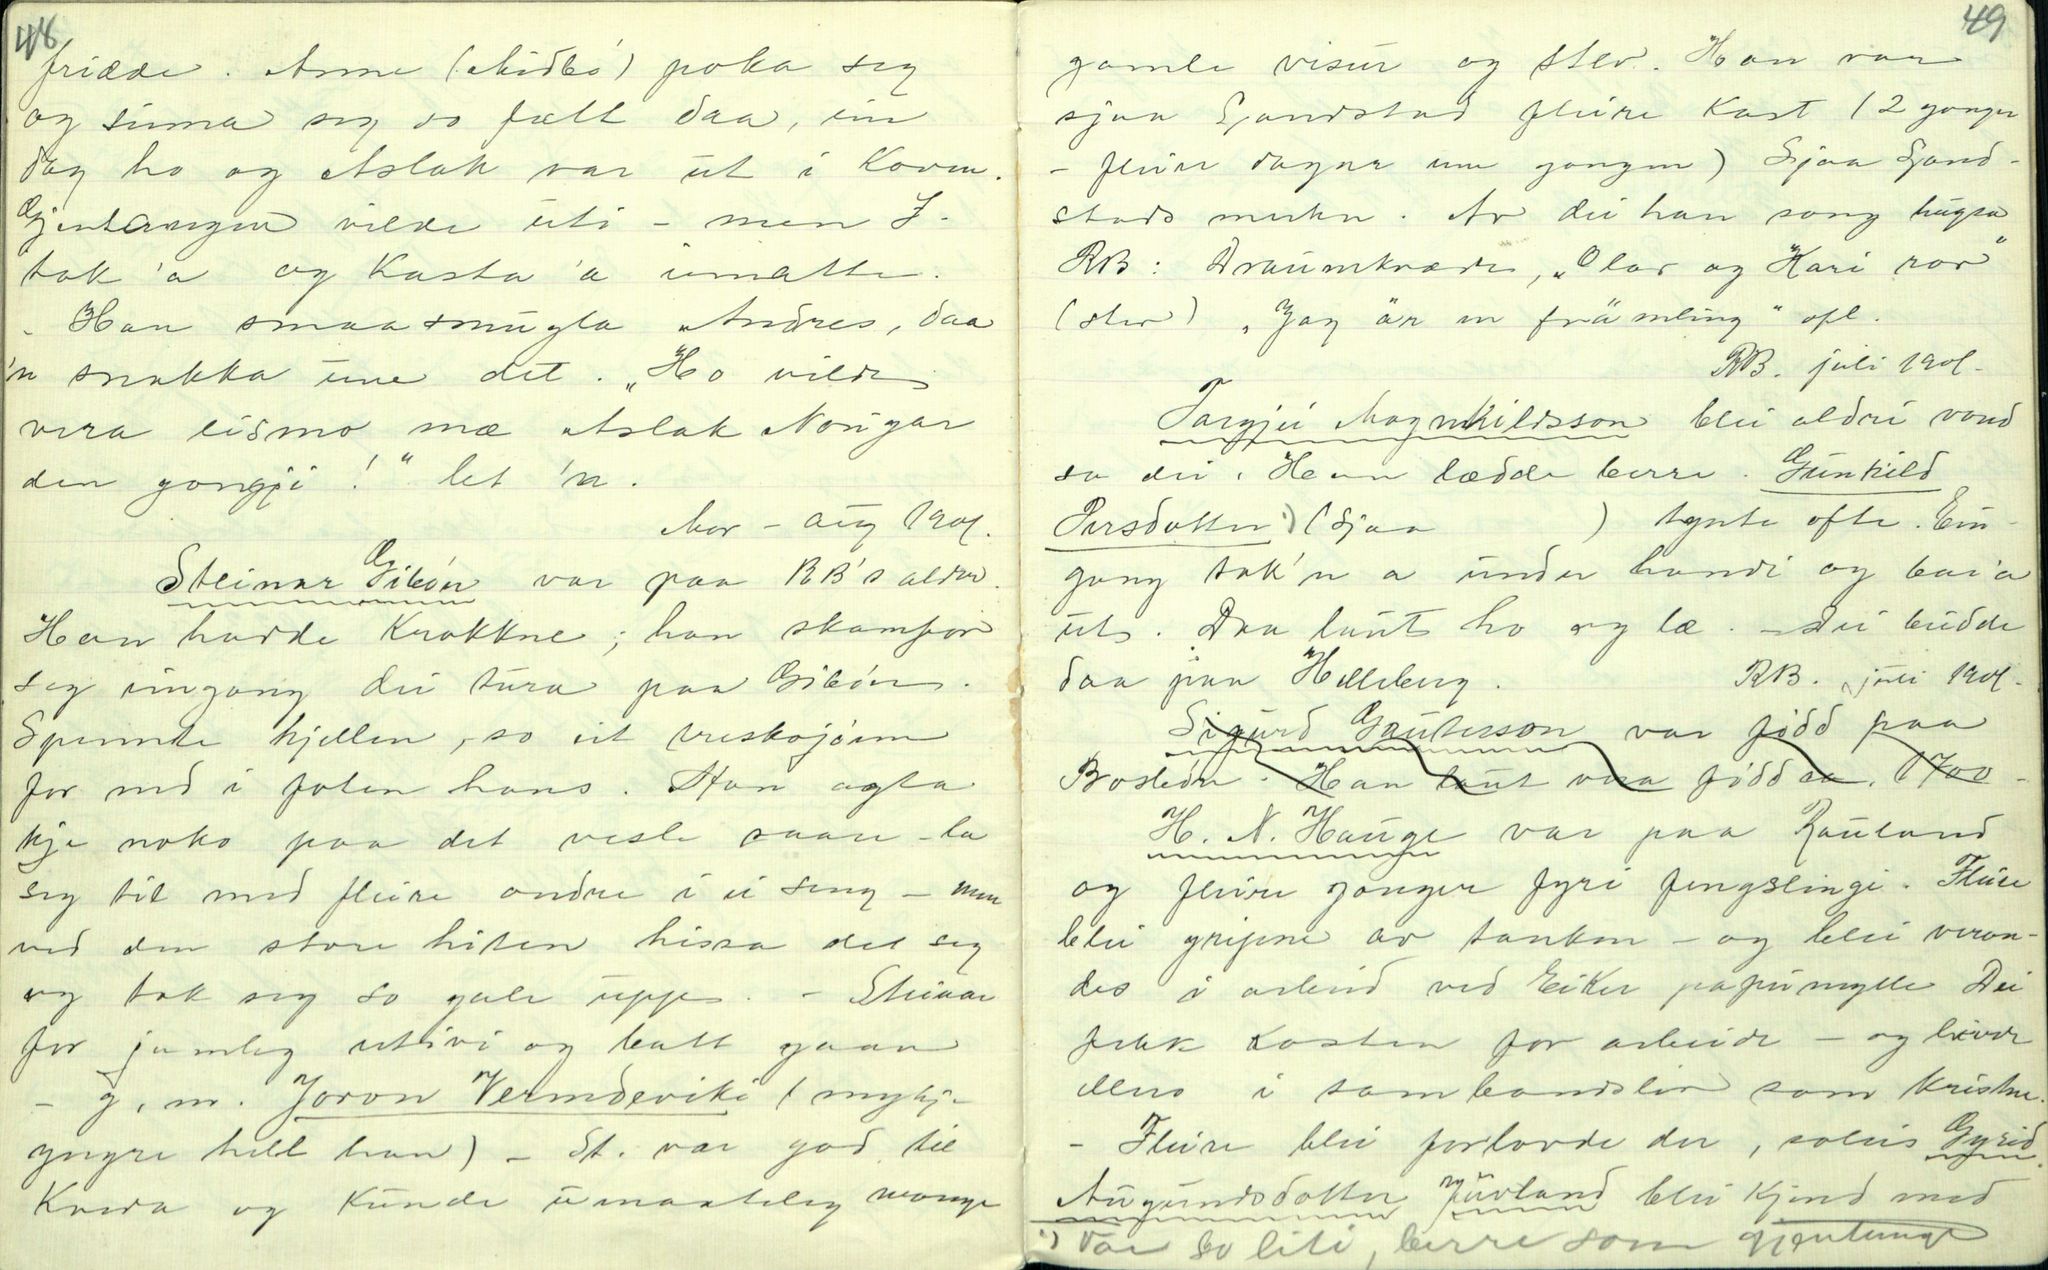 48
fridde. Anne (Midbö) poka seg
og suma seg so fælt daa, ein
dag ho og Aslak var ut i Kovin.
Gjentungen vilde uti - men J.
tok 'a og kasta 'a imatte.
- Han smaasmugla Andres, daa
'n snakka um det. „Ho vilde
vera eismo mæ Aslak Nougar
den gongji!" let 'n.
Mor - aug 1901.
Steinar Gibøn var paa RB's alder.
Han hadde Krakkne; han skamfor
seg eingong dei tura paa Gibøn.
Spennte hjellen, so eit treskojønn
for ned i foten hans. Han agta
kje noko paa det vesle saare - la
seg til med fleire andre i ei seng - men
ved den store hiten hissa det seg
og tok seg so gale uppe. - Steinar
for jamleg utivi og batt gaan
- g. m. Joron Vermdeviki (mykje
yngre hell han) - St. var god til
Kveda og kunde umaateleg mange
49
gamle visur og stev. Han var
sjaa Sandstad fleire Kast (2 gonger
- fleire dagar um gongen) Sjaa Sand-
stads mukn. Av dei han song hugsa
RB: Draumkvæde, „Olav og Kari ror"
(stev) „Jag är en främling" ofl.
RB. juli 1901.
Targjei Magnhildsson blei aldri vond
sa dei. Han lædde berre. Gunhild
Persdotter 1) (sjaa ) tynte ofte. Ein-
gong tok'n a under hondi og bar'a
ut. Daa laut ho og læ. - Dei budde
daa paa Helleberg. RB. juli 1901.
Sigurd Gautesson var född paa
Bosbøn. Han laut vera född ca. 1700-
H. N. Hauge var paa Rauland
og fleire gonger fyri fengslingi. Fleire
blei gripne av tanken - og blei veran-
des i arbeid ved Eiker papirmylle Dei
fekk kosten for arbeide - og livde
elles i sambandsliv som kristne.
- Fleire blei forlovde der, soleis Gyrid
Augundsdotter Juvland blei kjend med
1) Var so liti, berre som gjentunge